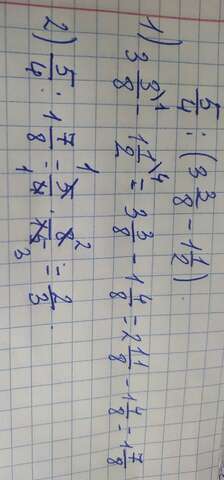 5/4 : (3 3/8 - 1 1/2)
1) 3 3/8 \1 - 1 1/2 \4 = 3 3/8 - 1 4/8 = 2 11/8 - 1 4/8 = 1 7/8
2) 5/4 : 1 7/8 = 5/4 · 8/15 = 2/3.